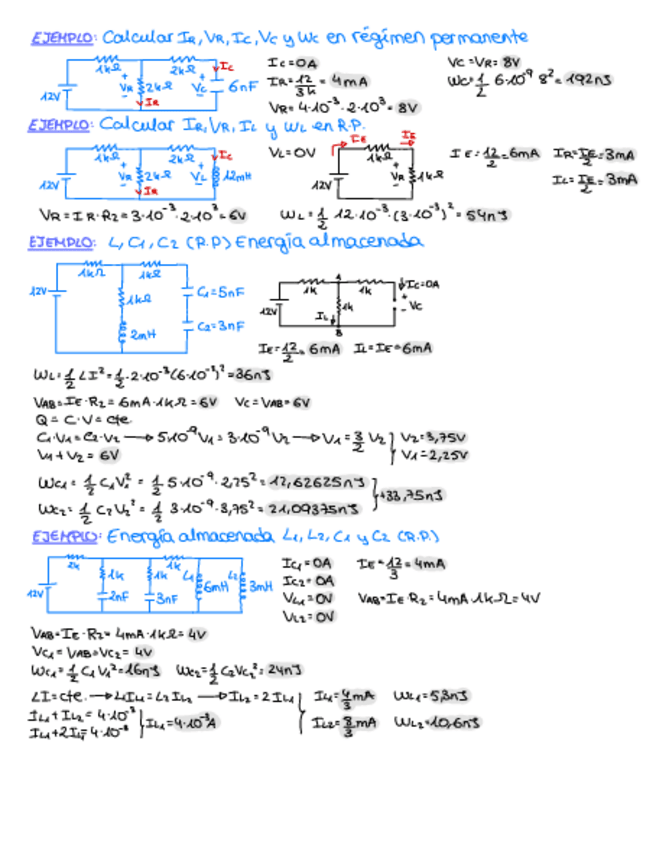 EJEMPLO: Calcular IR, VR, IC, VC y WC en régimen permanente
1kΩ 2kΩ IC
12V VR 2kΩ VC 6nF
IR
IC=0A
IR=12/3k=4mA
VR=4·10⁻³·2·10³=8V
VC=VR=8V
WC=1/2 6·10⁻⁹ 8²=192nJ
EJEMPLO: Calcular IR, VR, IL y WL en R.P.
1kΩ 2kΩ IC
12V VR 2kΩ VL 12mH
IR
VL=0V
IE IE
1kΩ
12V VR 1kΩ
IE=12/2=6mA IR=IE/2=3mA
IL=IE/2=3mA
VR=IR·R2=3·10⁻³·2·10³=6V WL=1/2 12·10⁻³·(3·10⁻³)²=54nJ
EJEMPLO: L, C1, C2 (R.P) Energía almacenada
1kΩ 1kΩ
12V 1kΩ C1=5nF
2mH C2=3nF
A
1k 1k IC=0A
12V IL 1k VC
B
IE=12/2=6mA IL=IE=6mA
WL=1/2 LI²=1/2·2·10⁻³(6·10⁻³)²=36nJ
VAB=IE·R2=6mA·1kΩ=6V VC=VAB=6V
Q=C·V=cte.
C1·V1=C2·V2 → 5·10⁻⁹V1=3·10⁻⁹V2 → V1=3/5 V2 V2=3,75V
V1+V2=6V V1=2,25V
WC1=1/2 C1V1²=1/2 5·10⁻⁹·2,25²=12,62625nJ
+33,75nJ
WC2=1/2 C2V2²=1/2 3·10⁻⁹·3,75²=21,09375nJ
EJEMPLO: Energía almacenada L1, L2, C1 y C2 (R.P.)
2k 1k
12V 1k 1k L1 6mH L2 3mH
2nF 3nF
IC1=0A
IC2=0A
VL1=0V
VL2=0V
IE=12/3=4mA
VAB=IE·R2=4mA·1kΩ=4V
VAB=IE·R2=4mA·1kΩ=4V
VC1=VAB=VC2=4V
WC1=1/2 C1V1²=16nJ WC2=1/2 C2VC2²=24nJ
LI=cte. → L1IL1=L2IL2 → IL2=2IL1 IL1=4/3mA WL1=5,3nJ
IL1+IL2=4·10⁻³
IL1+2IL1=4·10⁻³ IL1=4·10⁻³A IL2=8/3mA WL2=10,6nJ